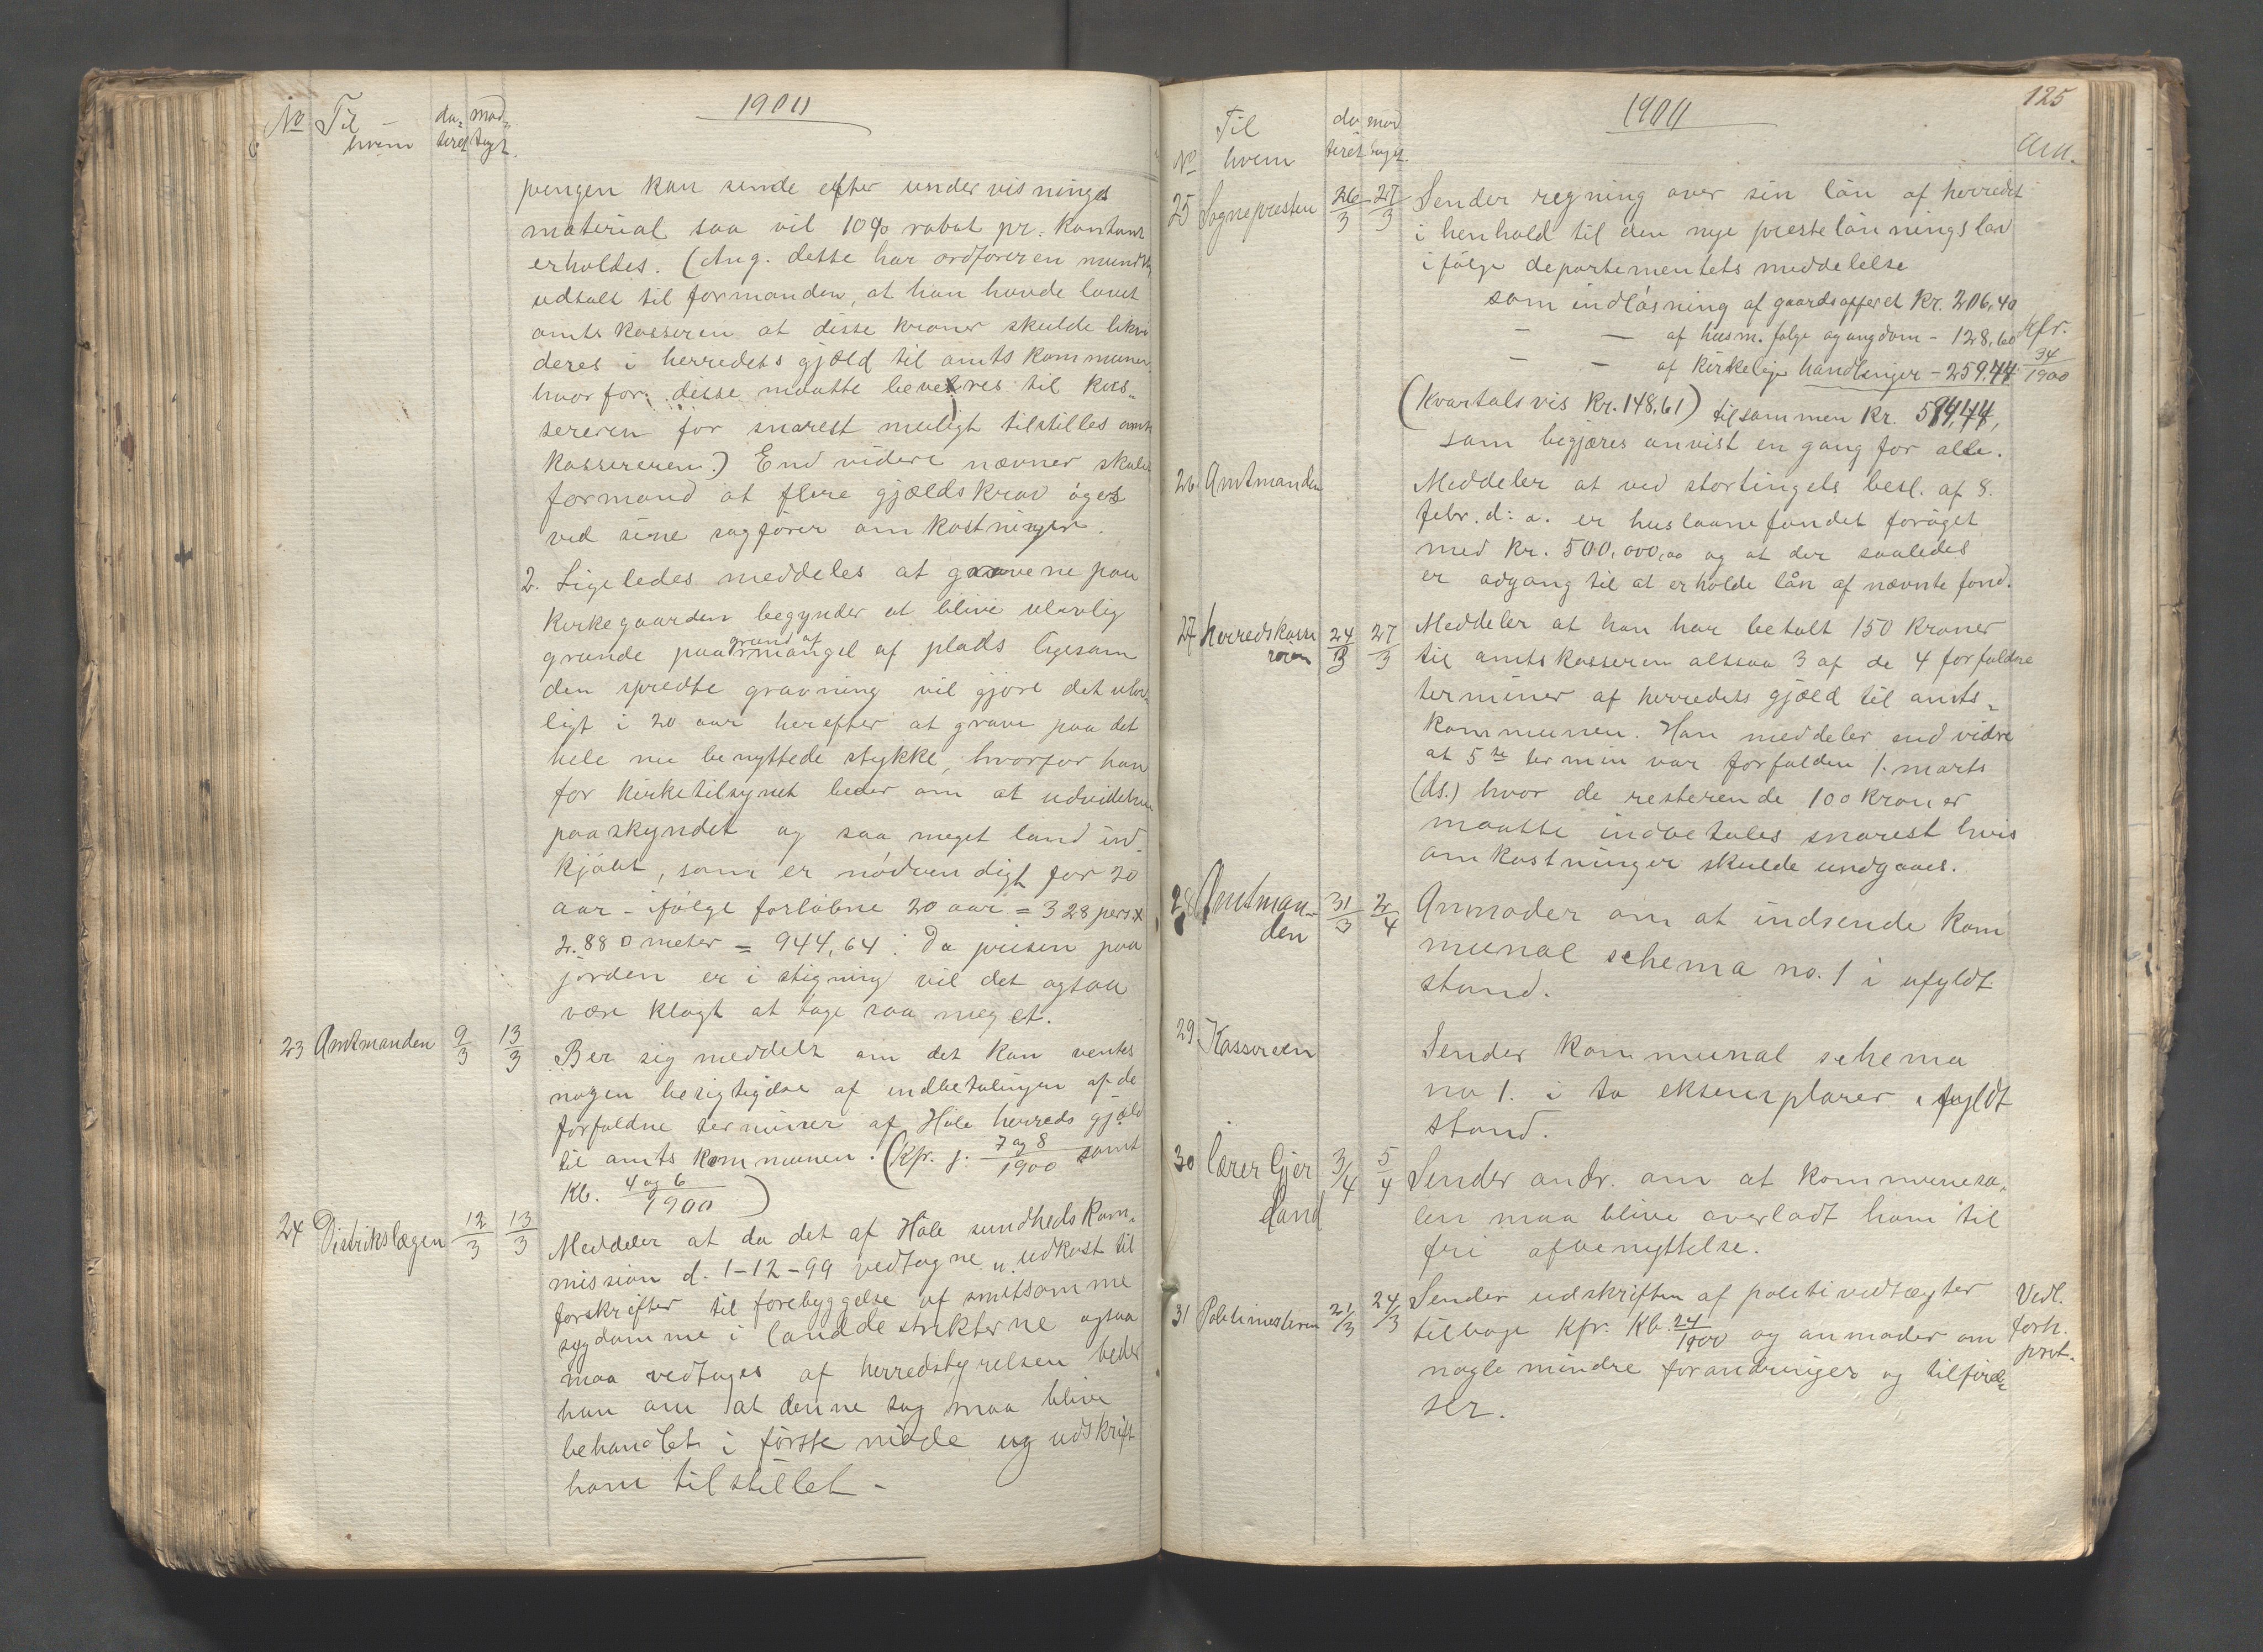 1900
No Til hvem da-teret mod-taget.
pengen kan sende efter undervisnings
material saa vil 10% rabat pr. kontant
erholdes. (Ang. dette har ordføreren mundtlig
udtalt til formanden, at han havde lovet
amtskasseren at disse kroner skulde likvi
deres i herredets gjæld til amtskommunen,
hvorfor disse maatte leveres til kas-
sereren for snarest muligt tilstilles amts
kassereren.) End videre nævner skole
formand at flere gjældskrav øges
ved sine sagfører omkostninger.
2. Ligeledes meddeles at gravene paa
kirkegaarden begynder at blive ulovlig
grunde paa grund af mangel af plads ligesom
den spredte gravning vil gjøre det ulov-
ligt i 20 aar herefter at grave paa det
hele nu benyttede stykke, hvorfor han
for kirketilsynet beder om at udvidelsen
paaskyndet og saa meget land ind-
kjøbt, som er nødvendigt for 20
aar - ifølge forløbne 20 aar = 328 pers. x
2.88 □ meter = 944,64. Da prisen paa
jorden er i stigning vil det ogsaa
være klogt at tage saa meget.
23 Amtmanden 9/3 13/3 Ber sig meddelt om det kan ventes
nogen besigtigelse af indbetalingen af de
forfaldne terminer af Hole herreds gjæld
til amtskommunen. (Kfr. j. 7 og 8/1900 samt
Kb. 4 og 6/1900)
24 Distrikslægen 12/3 13/3 Meddeler at da det af Hole sundhedskom-
mission d. 1-12-99 vedtagne "udkast til
forskrifter til forebyggelse af smitsomme
sygdomme i landdestrikterne ogsaa
maa vedtages af herredstyrelsen beder
han om at denne sag maa blive
behandlet i første møde og udskrift
ham tilstillet -
125
1900
No Til hvem da teret mod taget. Anm.
25 Sognepresten 26/3 27/3 Sender regning over sin løn af herredet
i henhold til den nye prestelønningslov
ifølge departementets meddelelse
som indløsning af gaardsofferet Kr. 206,40
— — af husm. folge og ungdom - 128,60 Kfr.
— — af kirkelige handlinger - 259.44 34/1900
(Kvartalsvis Kr. 148,61) tilsammen Kr. 594,44,
som begjæres anvist en gang for alle.
26 Amtmanden Meddeler at ved stortingets besl. af 8.
febr. d. a. er huslaanefondet forøget
med Kr. 500,000,00 og at der saaledes
er adgang til at erholde lån af nævnte fond.
27 herredskasse reren 24/3 27/3 Meddeler at han har betalt 150 kroner
til amtskasseren altsaa 3 af de 4 forfaldne
terminer af herredets gjæld til amts-
kommunen. Han meddeler end vidre
at 5te termin var forfalden 1. marts
(ds.) hvor de resterende 100 kroner
maatte indbetales snarest hvis
omkostninger skulde undgaaes.
28 Amtman-den 31/3 2/4 Anmoder om at indsende kom
munal schema no. 1 i ufyldt
stand.
29 Kassereren Sender kommunal schema
no 1. i to eksemplarer i fyldt
stand.
30 lærer Gjer dand 3/4 5/4 Sender andr. om at kommuneso-
len maa blive overladt ham til
fri afbenyttelse.
31 Politimesteren 21/3 24/3 Sender udskriften af politivedtægter Vedl.
tilbage Kfr. Kb. 24/1900 og anmoder om forh.
nogle mindre forandringer og tilføiel- prot.
ser.